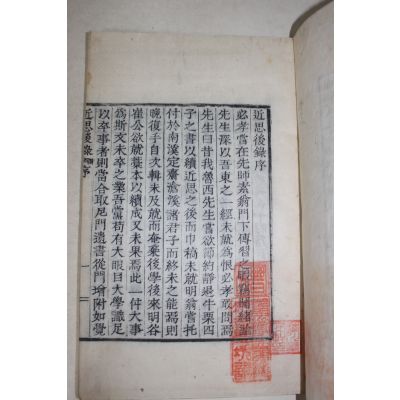 近思後錄序
必孝嘗在先師素翁門下傳習之
先生深以吾東之一經未就爲恨必孝敢問焉
先生曰昔我魯西先生嘗欲節約靜退牛栗四
子之書以續近思之後而巾稿未就明翁嘗托
付於南溪定齋滄溪諸君子而終未之能焉則
晚復手自次輯未及就而奄棄後學後來明谷
崔公欲就藁本以續成又未果焉此一仲大事
爲斯文未卒之業吾嘗苟有大眼目大學識足
以卒事者則當合取尼門遺書從門增附如覺
近思後錄 序 一